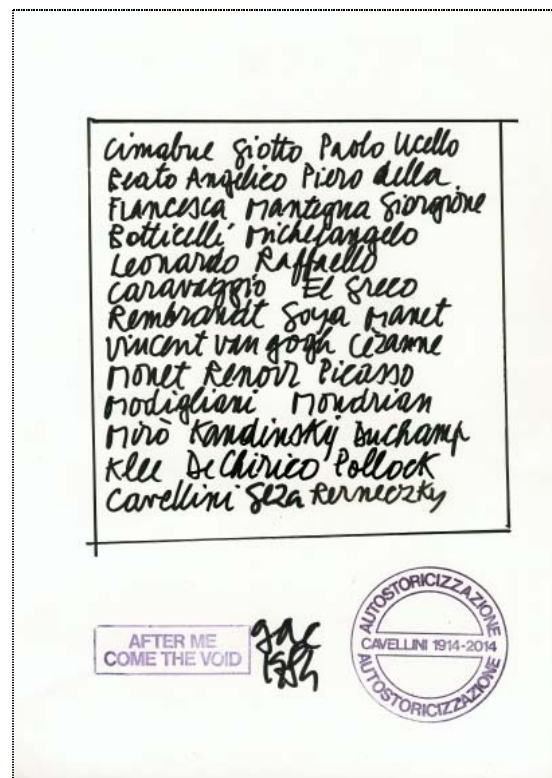 Cimabue Giotto Paolo Ucello
Beato Angelico Piero della
Francesca Mantegna Giorgione
Botticelli Michelangelo
Leonardo Raffaello
Caravaggio El Greco
Rembrandt Goya Manet
Vincent van gogh Cézanne
Monet Renoir Picasso
Modigliani Mondrian
Mirò Kandinskij Duchamp
Klee De Chirico Pollock
Cavellini Geza Perneczky
AFTER ME
COME THE VOID
gac
AUTOSTORICIZZAZIONE
CAVELLINI 1914-2014
AUTOSTORICIZZAZIONE